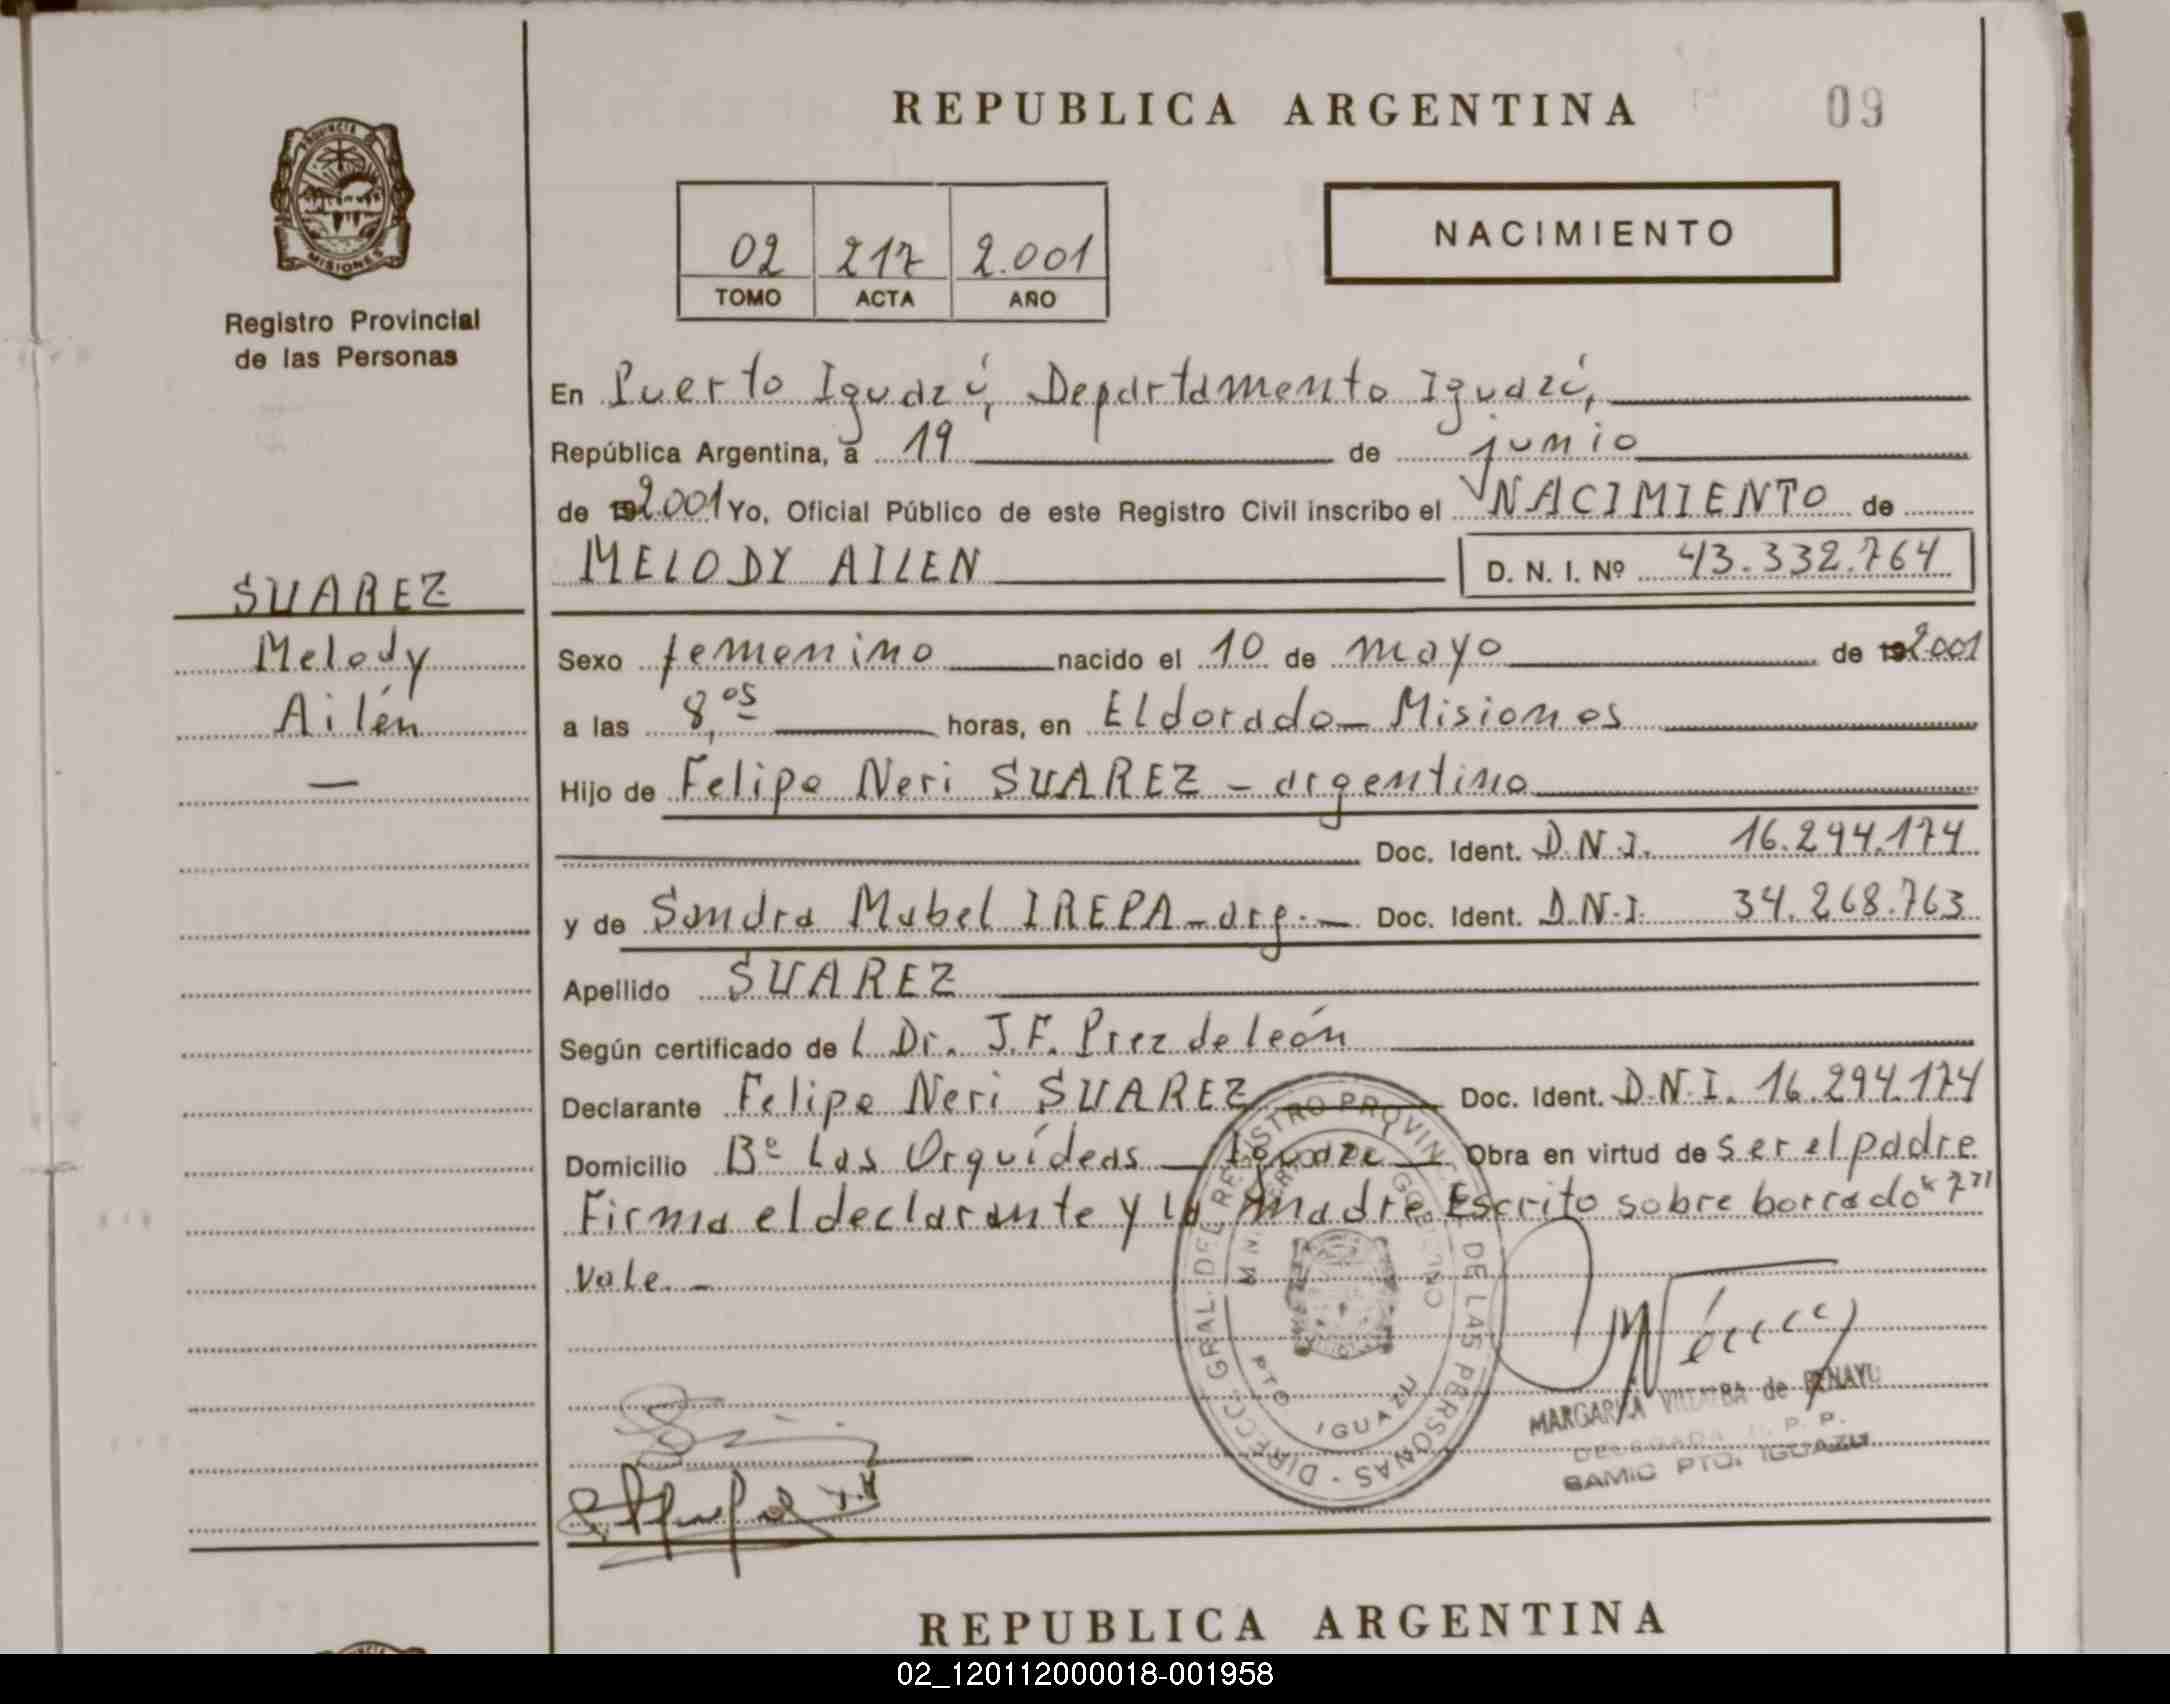 REPUBLICA ARGENTINA
09
PROVINCIA
MISIONES
Registro Provincial
de las Personas
02 217 2.001
TOMO ACTA AÑO
NACIMIENTO
En Puerto Iguazú, Departamento Iguazú,
República Argentina, a 19 de junio
de 2.001 Yo, Oficial Público de este Registro Civil inscribo el NACIMIENTO de
MELODY AILEN D. N. I. Nº 43.332.764
SUAREZ
Melody
Ailén
—
Sexo femenino nacido el 10 de mayo de 2001
a las 8,05 horas, en Eldorado - Misiones
Hijo de Felipe Neri SUAREZ - argentino
Doc. Ident. D.N.I. 16.294.174
y de Sandra Mabel IREPA - arg. - Doc. Ident. D.N.I. 34.268.763
Apellido SUAREZ
Según certificado de l Dr. J.F. Prez de león
Declarante Felipe Neri SUAREZ Doc. Ident. D.N.I. 16.294.174
Domicilio Bº Las Orquídeas - Iguazú - Obra en virtud de ser el padre
Firma el declarante y la madre Escrito sobre borrado "7"
Vale. -
DIRECC. GRAL. DEL REGISTRO PROVINC. DE LAS PERSONAS
GOBIERNO
PTO IGUAZU
MARGARITA VILLALBA de BENAYU
DELEGADA R. P. P.
SAMIC PTO. IGUAZU
REPUBLICA ARGENTINA
02_120112000018-001958